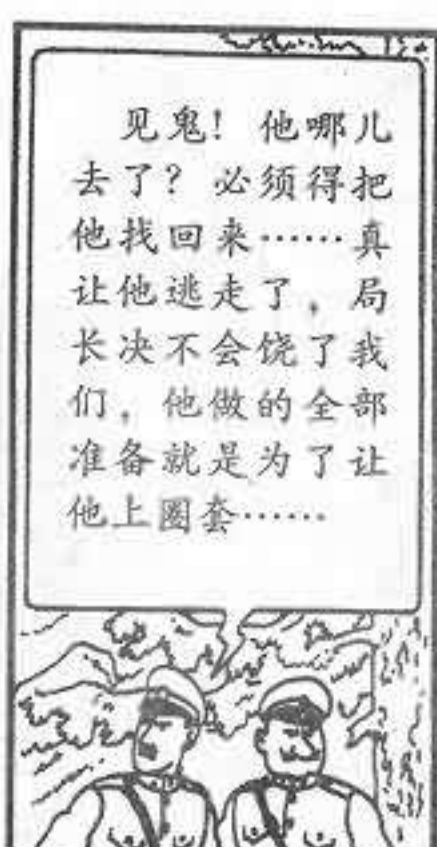 见鬼！他哪儿
去了？必须得把
他找回来……真
让他逃走了，局
长决不会饶了我
们，他做的全部
准备就是为了让
他上圈套……